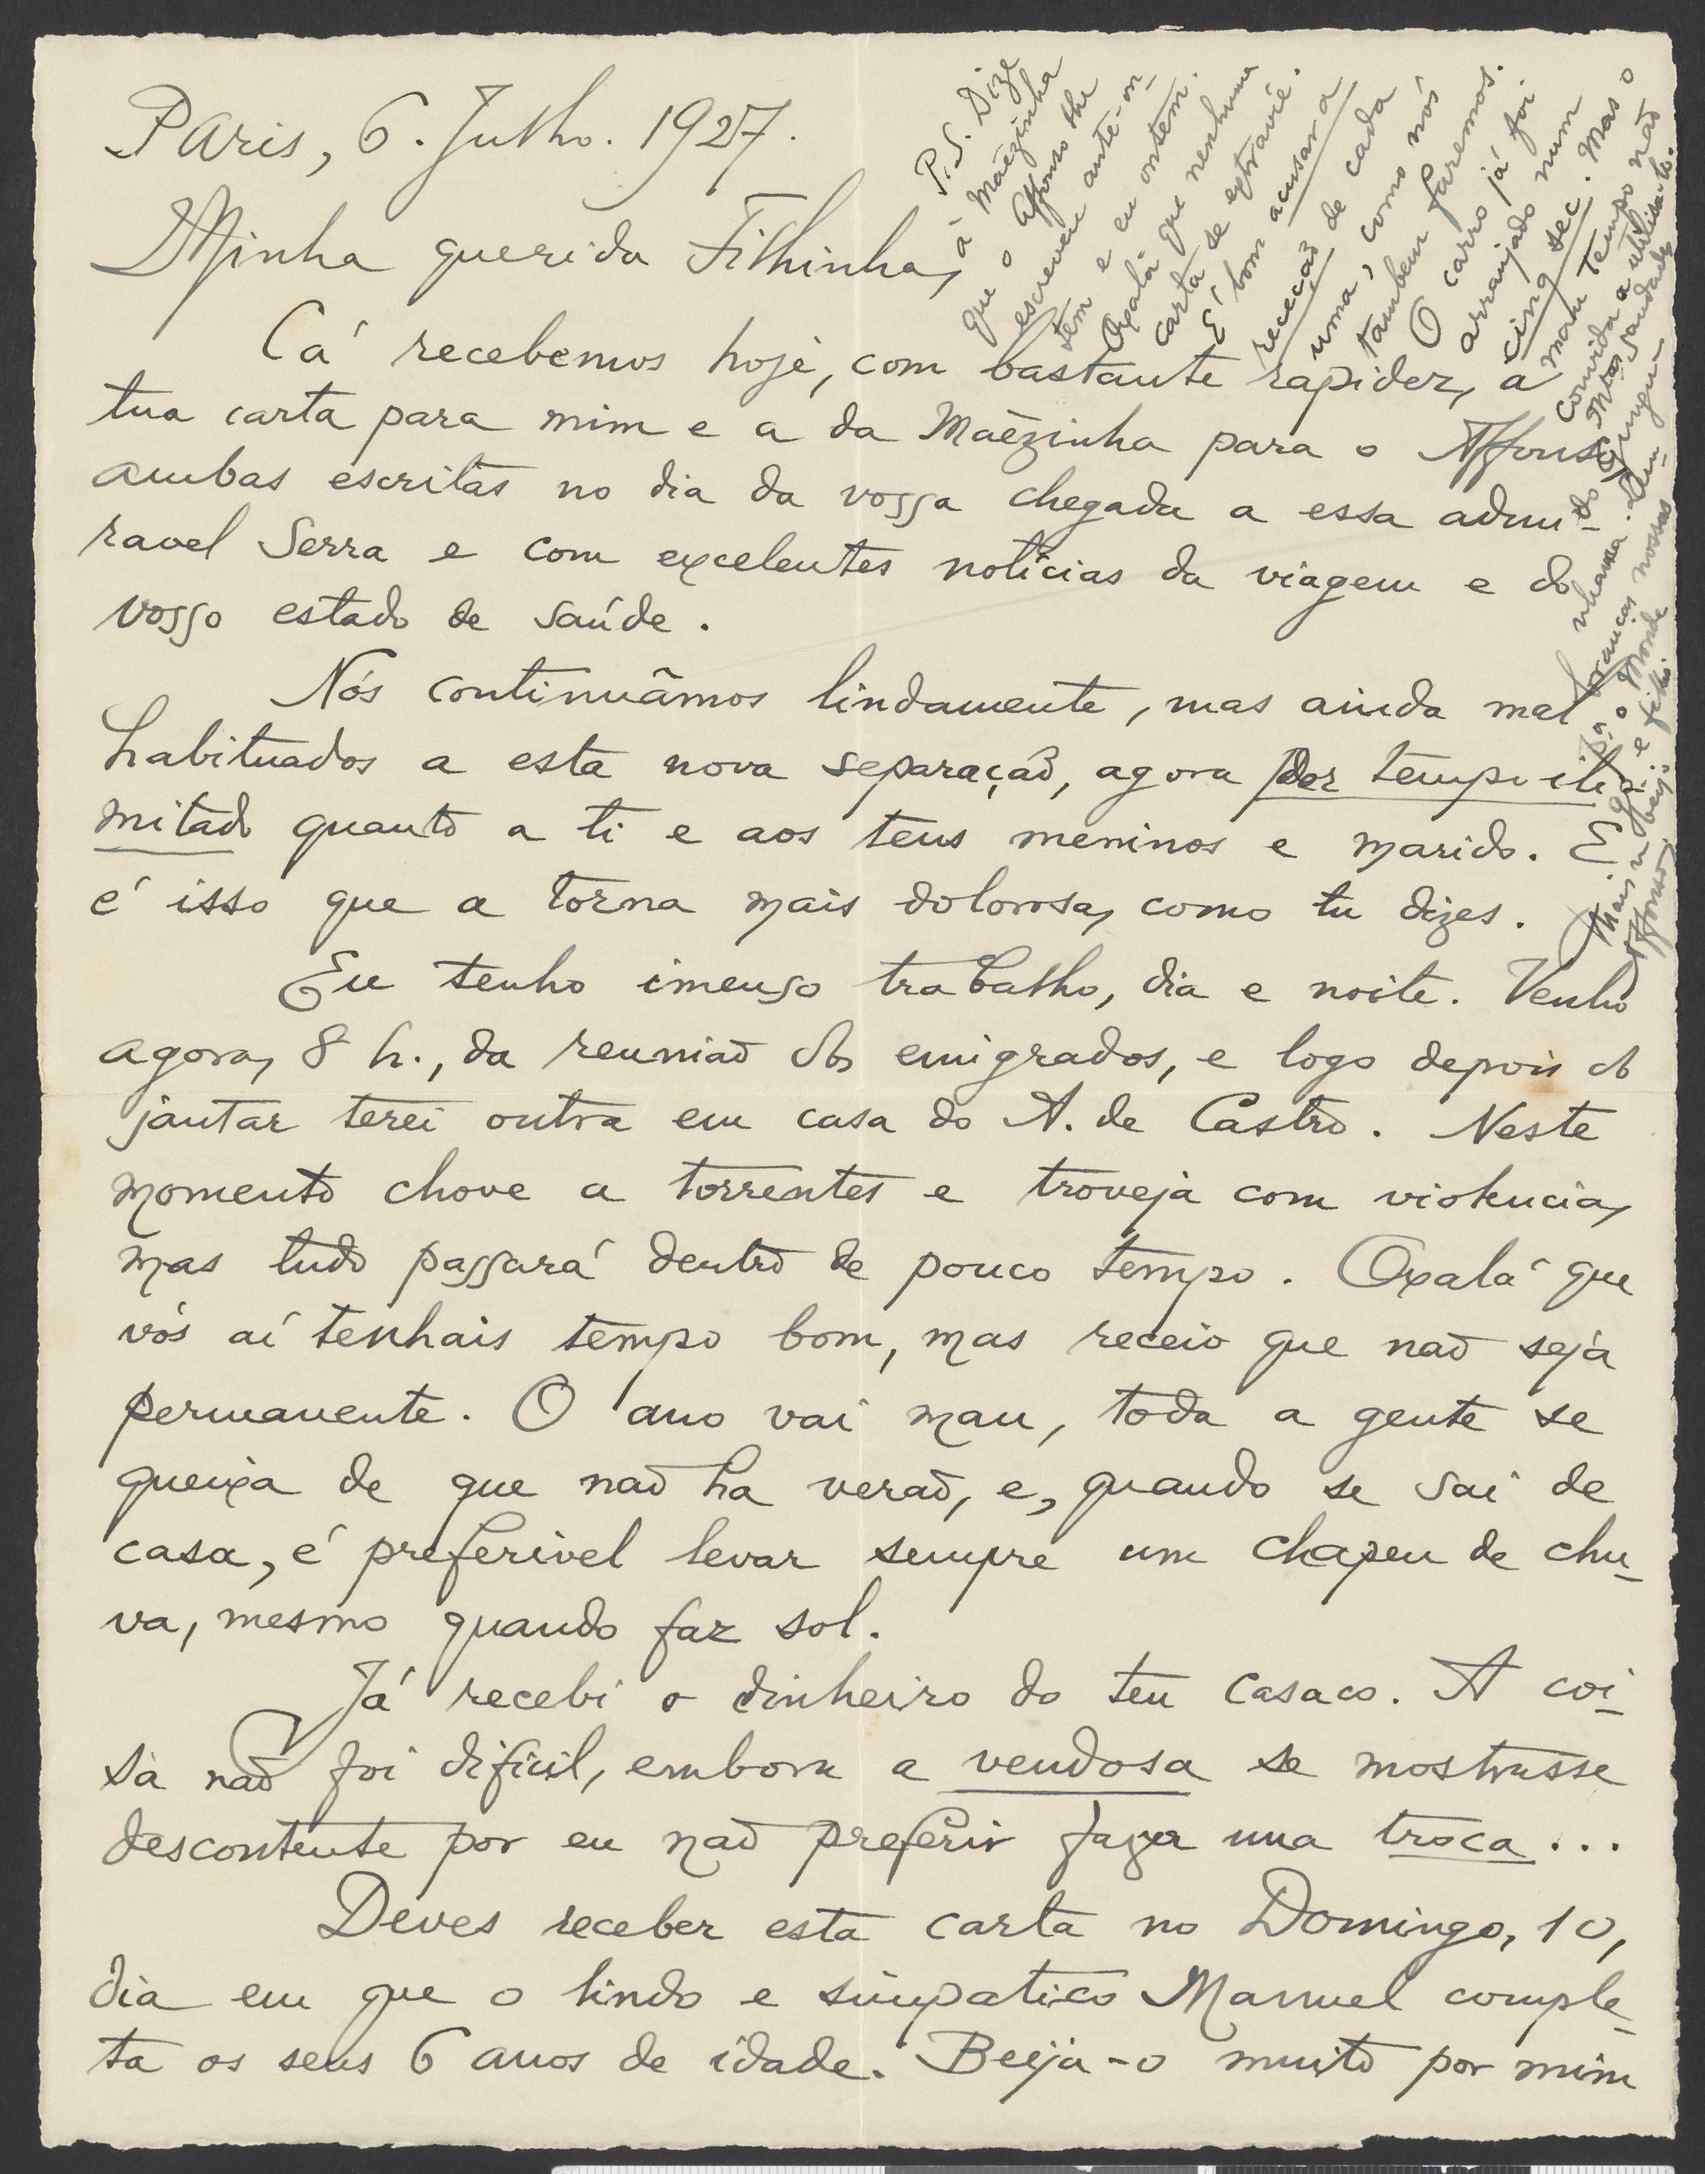 Paris, 6. Julho. 1927.
Minha querida Filhinha,
Cá recebemos hoje, com bastante rapidez, a
tua carta para mim e a da Mãezinha para o Affonso,
ambas escritas no dia da vossa chegada a essa admi-
ravel Serra e com excelentes notícias da viagem e do
vosso estado de saúde.
Nós continuâmos lindamente, mas ainda mal
habituados a esta nova separação, agora por tempo ili-
mitado quanto a ti e aos teus meninos e marido. E
é isso que a torna mais dolorosa, como tu dizes.
Eu tenho imenso trabalho, dia e noite. Venho
agora, 8 h., da reunião dos emigrados, e logo depois do
jantar terei outra em casa do A. de Castro. Neste
momento chove a torrentes e troveja com violencia,
mas tudo passará dentro de pouco tempo. Oxalá que
vós aí tenhais tempo bom, mas receio que não seja
permanente. O ano vai mau, toda a gente se
queixa de que não ha verão, e, quando se sai de
casa, é preferivel levar sempre um chapeu de chu-
va, mesmo quando faz sol.
Já recebi o dinheiro do teu casaco. A coi-
sa não foi dificil, embora a vendosa se mostrasse
descontente por eu não preferir fazer uma troca...
Deves receber esta carta no Domingo, 10,
dia em que o lindo e simpatico Manuel comple-
ta os seus 6 anos de idade. Beija-o muito por mim
P.S. Dize
á Mãezinha
que o Affonso lhe
escreveu ante-on-
tem e eu ontem.
Oxalá que nenhuma
carta se extravie.
É bom acusar a
receção de cada
uma, como nós
tambem faremos.
O carro já foi
arranjado num
cinq sec. Mas o
mau tempo não
convida a utilisal-o.
saudades
do
Lem-
branças nossas
Mais um beijo
e filho
Affonso